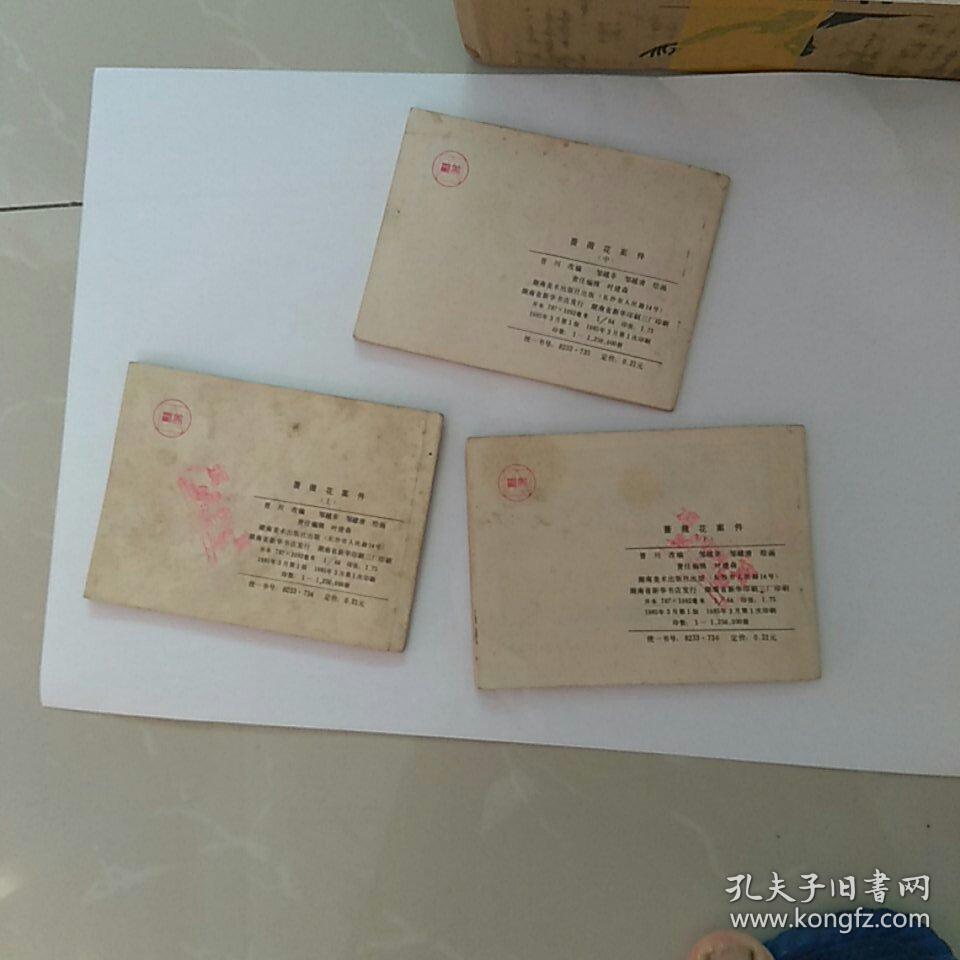 蔷薇花案件
(中)
晋川 改编 邹越非 邹越清 绘画
责任编辑 叶建森
湖南美术出版社出版 (长沙市人民路14号)
湖南省新华书店发行 湖南省新华印刷三厂印刷
开本 787×1092毫米 1/64 印张:1.75
1985年3月第1版 1985年3月第1次印刷
印数:1—1,256,000册
统一书号:8233·735 定价:0.21元
蔷薇花案件
(上)
晋川 改编 邹越非 邹越清 绘画
责任编辑 叶建森
湖南美术出版社出版 (长沙市人民路14号)
湖南省新华书店发行 湖南省新华印刷三厂印刷
开本 787×1092毫米 1/64 印张:1.75
1985年3月第1版 1985年3月第1次印刷
统一书号:8233·734 定价:0.21元
蔷薇花案件
晋川 改编 邹越非 邹越清 绘画
责任编辑 叶建森
湖南美术出版社出版 (长沙市人民路14号)
湖南省新华书店发行 湖南省新华印刷三厂印刷
开本 787×1092毫米 1/64 印张:1.75
1985年3月第1版 1985年3月第1次印刷
统一书号:8233·736 定价:0.21元
孔夫子旧书网
www.kongfz.com